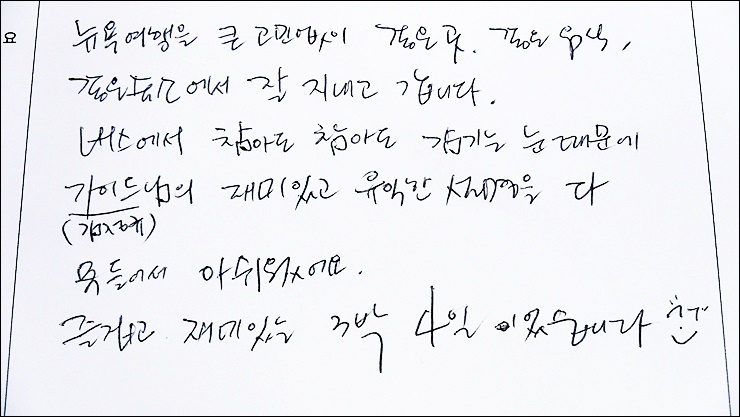 요
뉴욕여행을 큰 고민없이 좋은 곳, 좋은 음식,
좋은 에서 잘 지내고 갑니다.
버스에서 참아도 참아도 감기는 눈 때문에
가이드님의 재미있고 유익한 설명을 다
못 들어서 아쉬웠어요.
즐겁고 재미있는 3박 4일 이었습니다